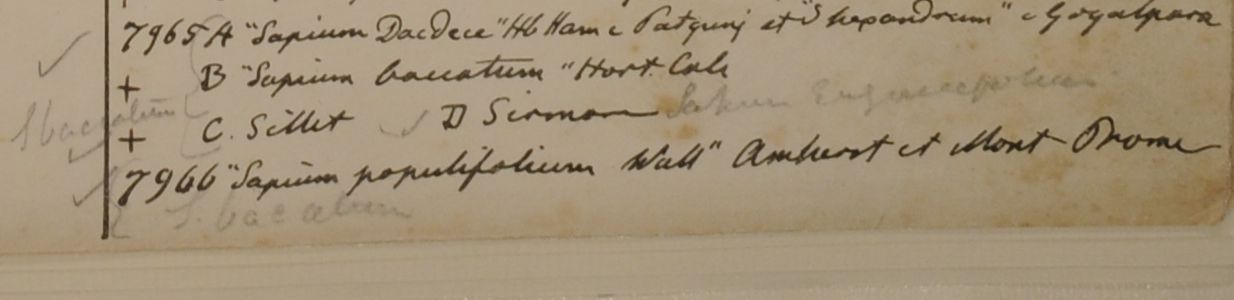 7965 A "Sapium Dacdece" Hb Ham e Patgunj et "S hexandrum" e Goyalpara
+ B "Sapium baccatum" Hort. Calc
S baccatum + C. Sillet D Sirmore Sapium Eugeniaefolium
7966 "Sapium populifolium Wall" Amherst et Mont Prome
S. baccatum